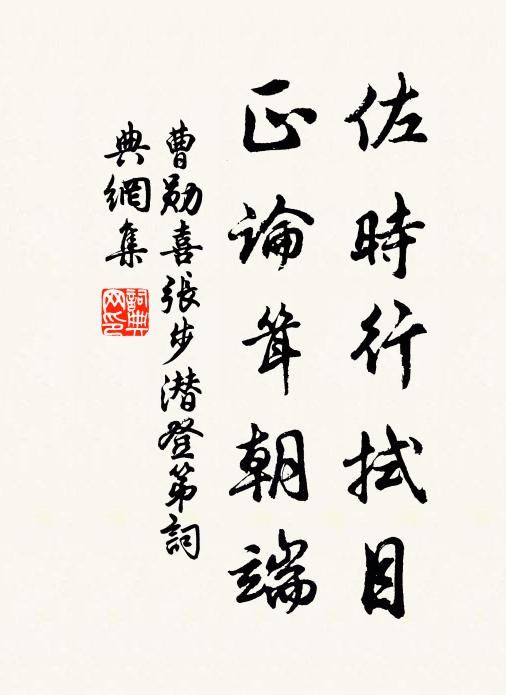 佐時行拭目
正論耸朝端
曹勛喜張步潛登第詞
典網集
詞典網印